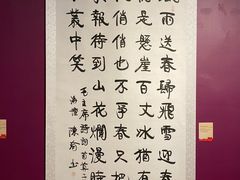 風雨送春歸飛雪迎春
已是懸崖百丈冰猶有
枝俏俏也不爭春只把
來報待到山花爛漫時
叢中笑
毛主席詩詞